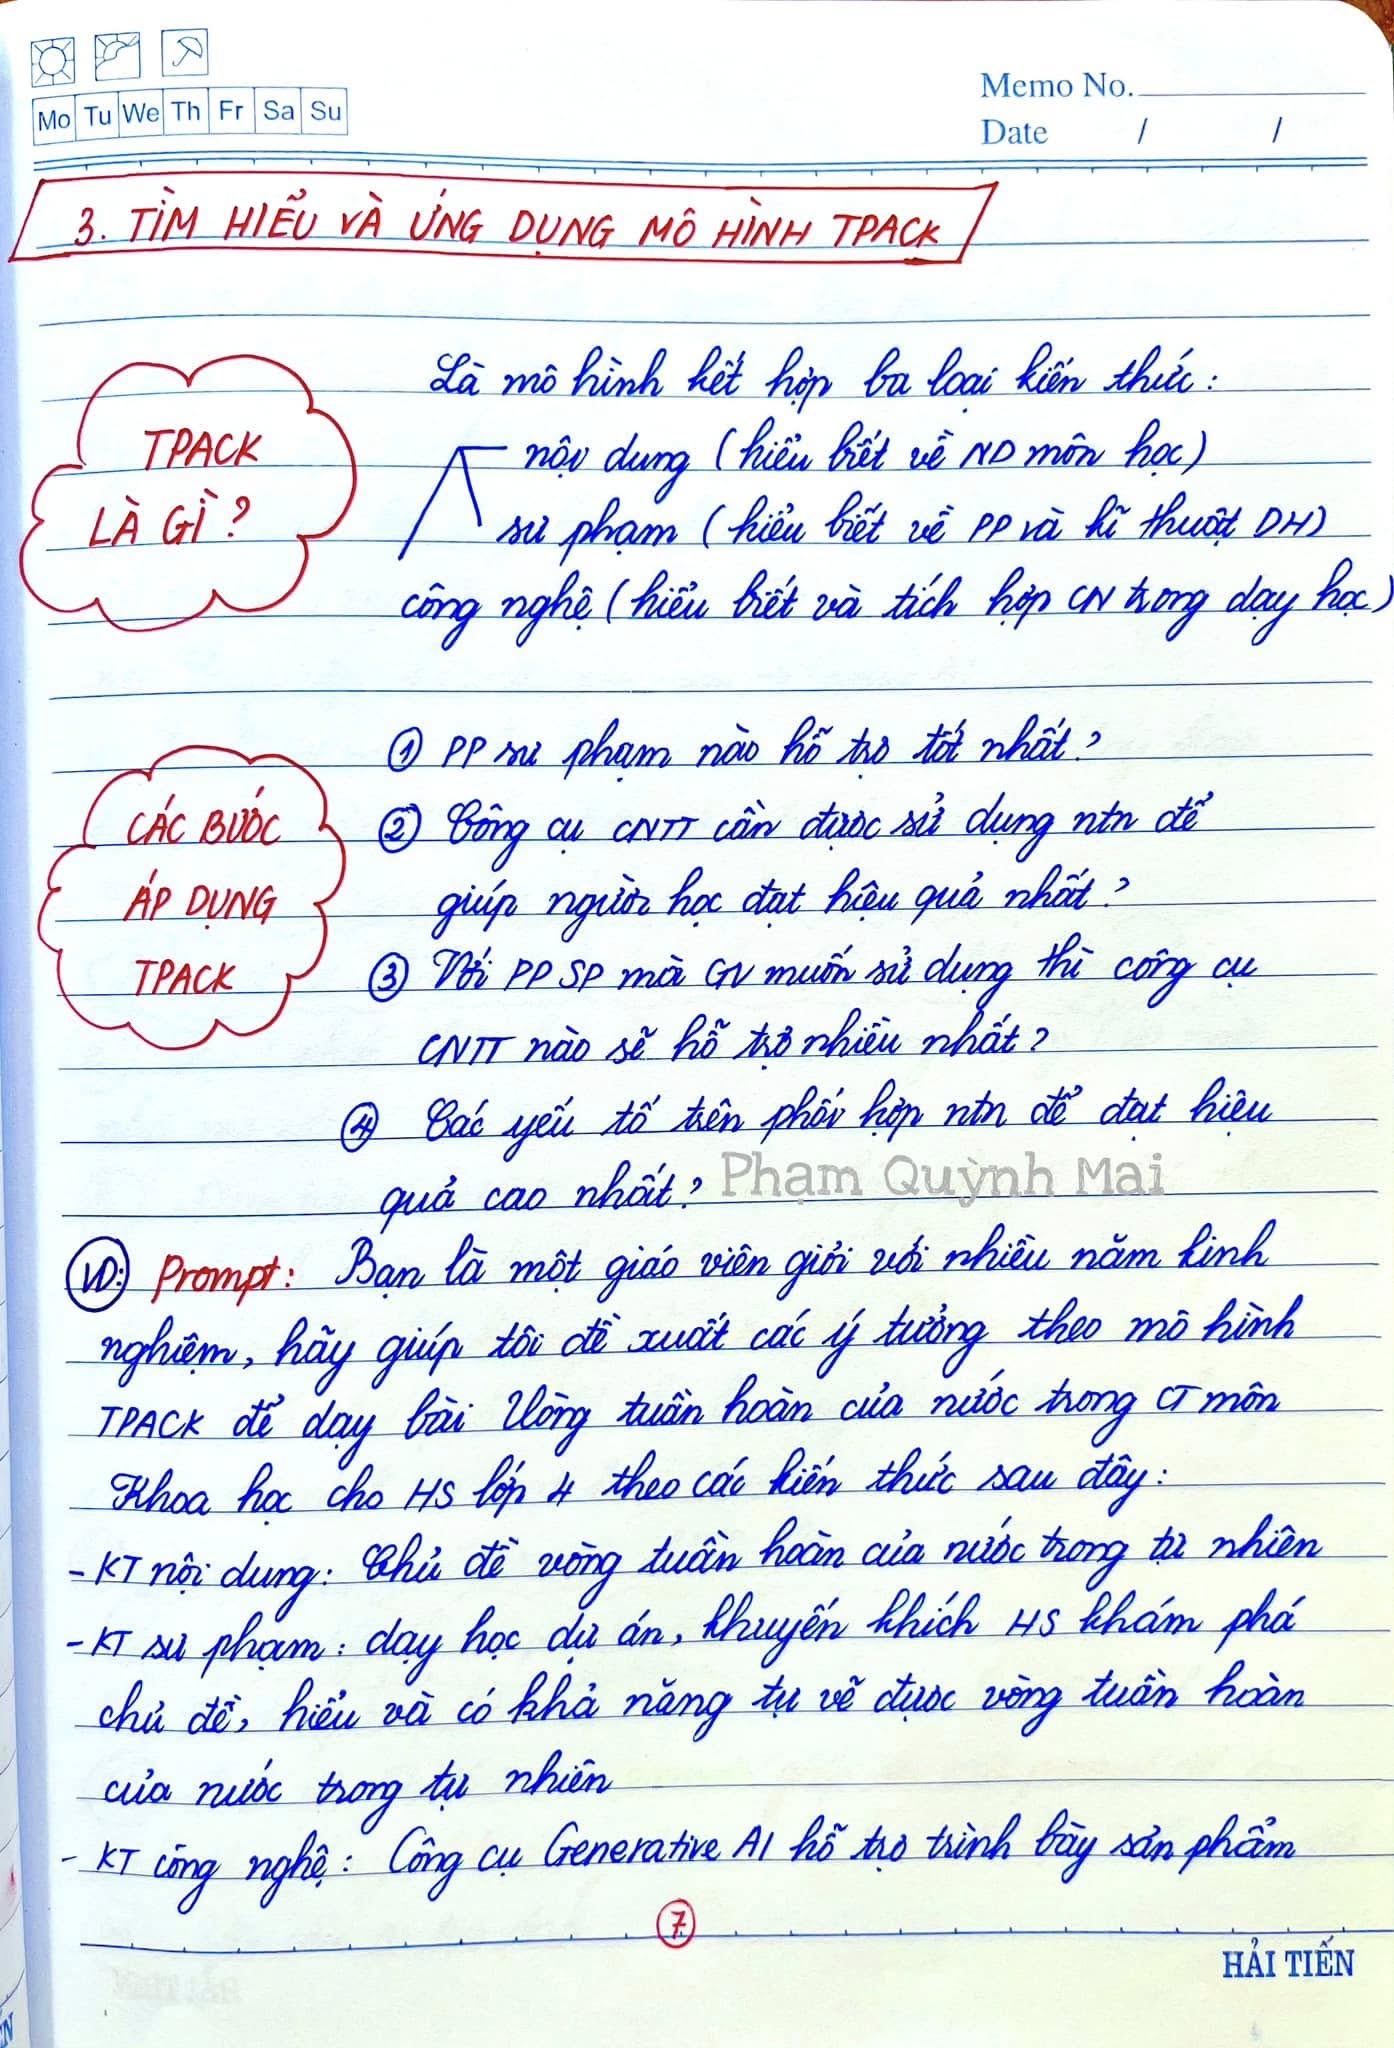 Mo Tu We Th Fr Sa Su
Memo No.
Date / /
3. TÌM HIỂU VÀ ỨNG DỤNG MÔ HÌNH TPACK
TPACK
LÀ GÌ?
Là mô hình kết hợp ba loại kiến thức:
nội dung (hiểu biết về ND môn học)
sư phạm (hiểu biết về PP và kĩ thuật DH)
công nghệ (hiểu biết và tích hợp CN trong dạy học)
CÁC BƯỚC
ÁP DỤNG
TPACK
① PP sư phạm nào hỗ trợ tốt nhất?
② Công cụ CNTT cần được sử dụng ntn để
giúp người học đạt hiệu quả nhất?
③ Với PP SP mà GV muốn sử dụng thì công cụ
CNTT nào sẽ hỗ trợ nhiều nhất?
④ Các yếu tố trên phối hợp ntn để đạt hiệu
quả cao nhất?
Phạm Quỳnh Mai
VD: Prompt: Bạn là một giáo viên giỏi với nhiều năm kinh
nghiệm, hãy giúp tôi đề xuất các ý tưởng theo mô hình
TPACK để dạy bài Vòng tuần hoàn của nước trong CT môn
Khoa học cho HS lớp 4 theo các kiến thức sau đây:
- KT nội dung: Chủ đề vòng tuần hoàn của nước trong tự nhiên
- KT sư phạm: dạy học dự án, khuyến khích HS khám phá
chủ đề, hiểu và có khả năng tự vẽ được vòng tuần hoàn
của nước trong tự nhiên
- KT công nghệ: Công cụ Generative AI hỗ trợ trình bày sản phẩm
7
HẢI TIẾN